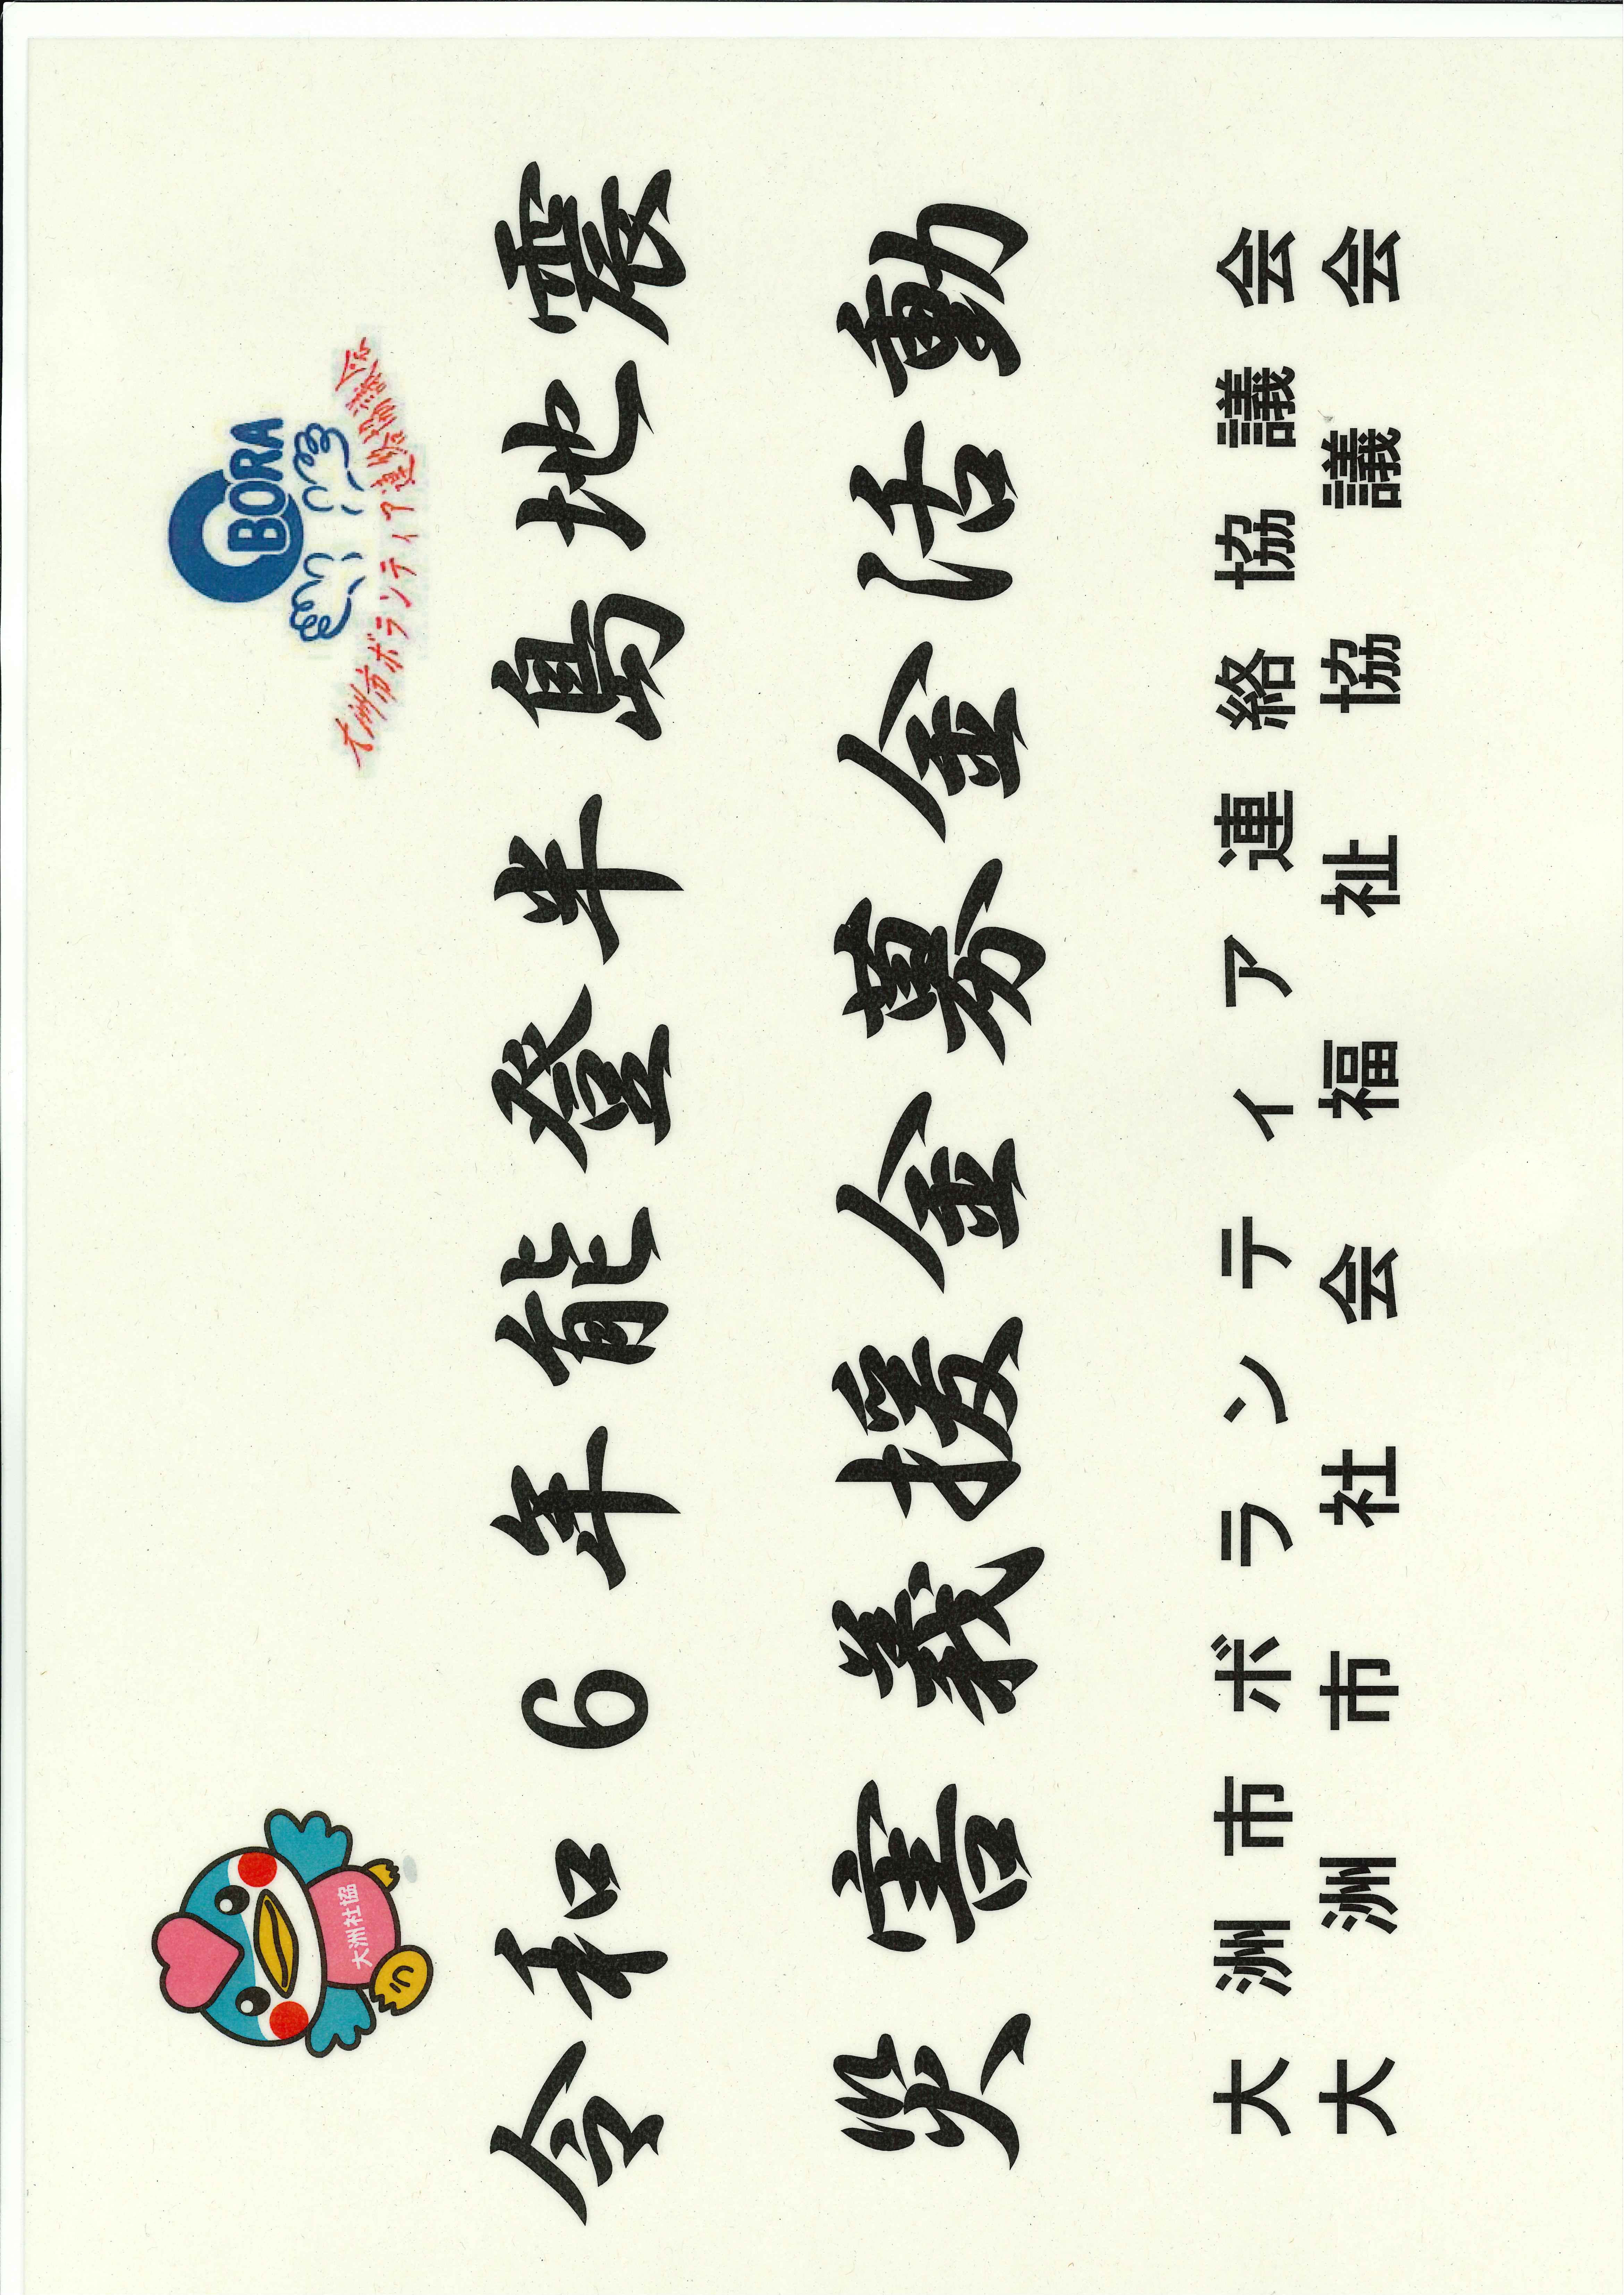 大洲社協
BORA
大洲市ボランティア連絡協議会
令和6年能登半島地震
災害義援金募金活動
大洲市ボランティア連絡協議会
大洲市社会福祉協議会